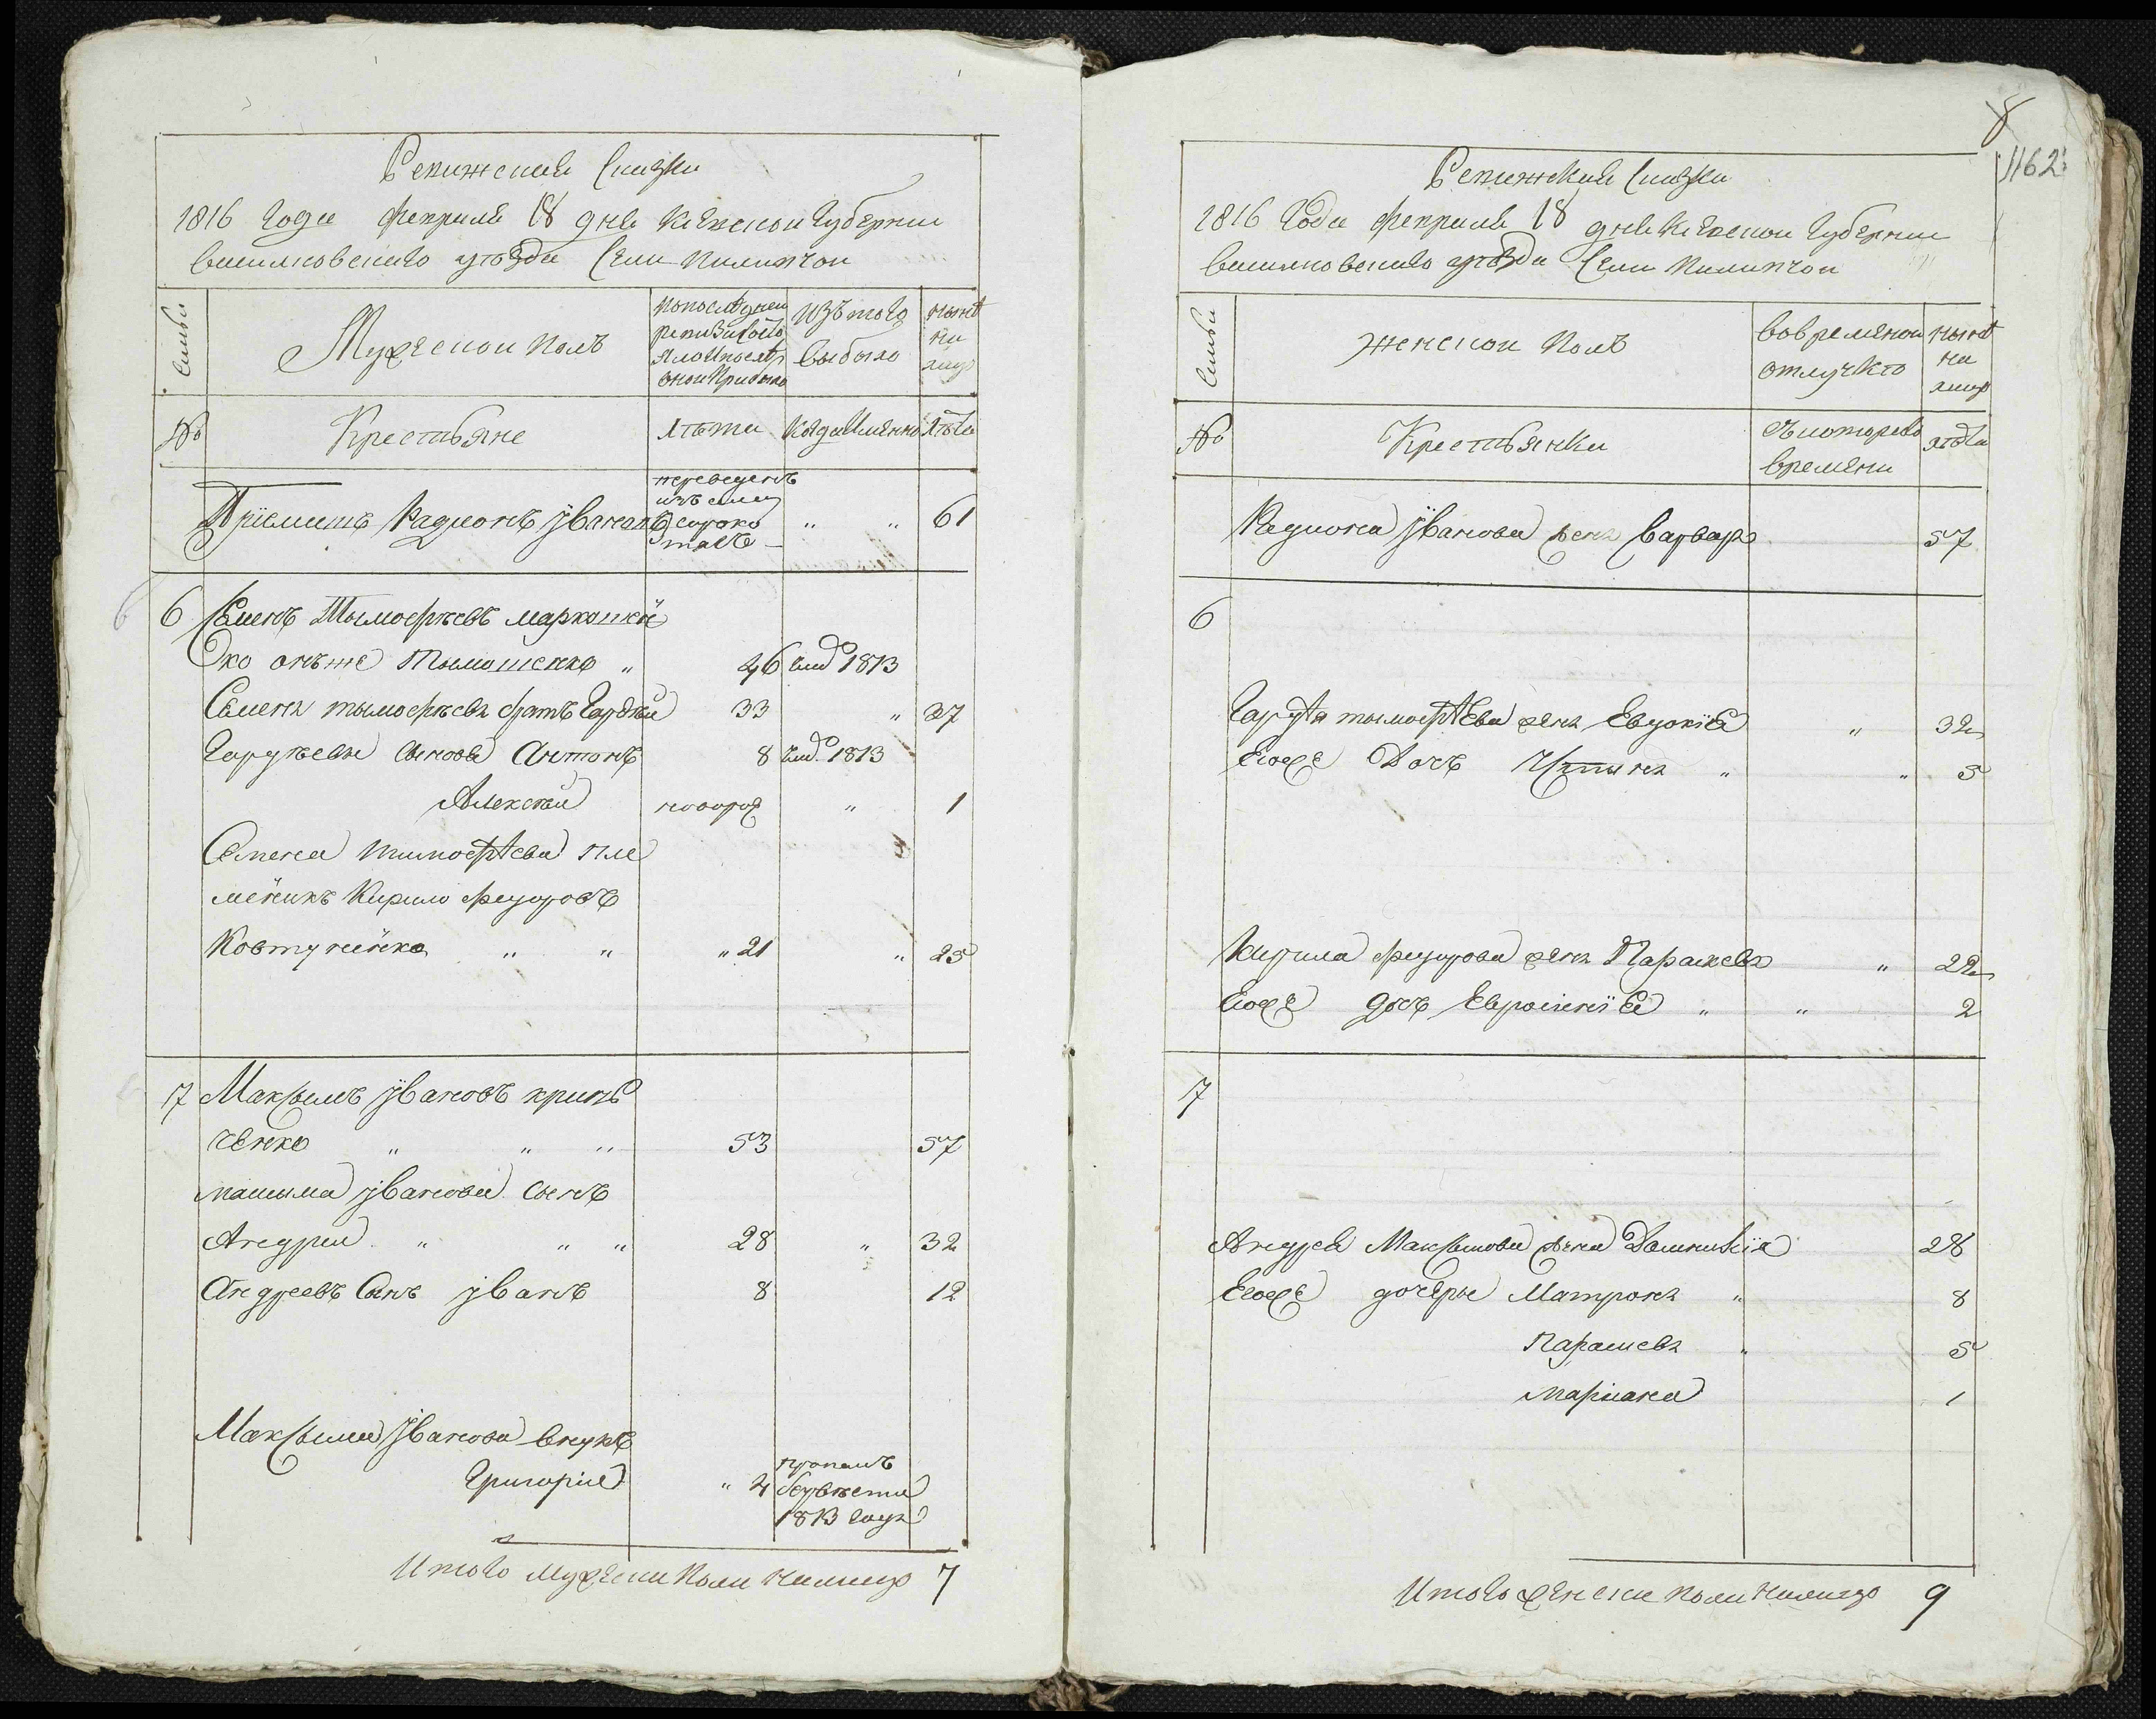 Ревижская Сказка
1816 Года Февраля 18 дня Киевской Губернии
васильковского уезда Села Пилипчи
Семьи
Мужеской полъ
попоследней
ревизии состо
яло и после
оной прибыло
изъ того
выбыло
ныне
на
лицо
№
Крестьяне
лета
когда именно
лета
Приемышъ Радионъ Ивановъ
переведенъ
изъ семи
сорока
" "
61
6 Семенъ Тымофеевъ Маркошкй
Око онъже Тымошенко "
46
1813
Семена тымофеева братъ Гордей
33
"
37
Гордеевы сынова Антонъ
8
1813
Алексей
новорож
"
1
Семена тимофеева пле
меникъ Кирило Федоровъ
Ковтуненко " "
" 21
"
25
7 Максымъ Ивановъ крини
ченко " " "
53
57
максыма Иванова сынъ
Андрей " " "
28
"
32
Андреевъ Сынъ Иванъ
8
12
Максыма Иванова внукъ
Григорий
" 4
пропалъ
безвести
1813 года
Итого мужеска пола налицо 7
8
1162
Ревижская Сказка
1816 Года Февраля 18 дня Киевской Губернии
васильковского уезда Села Пилипчи
Семьи
женской полъ
вовременой
отлучке
ныне
на
лицо
№
Крестьянки
съ которого
времени
лета
Радиона Иванова жена Варвара
57
6
Гордея тымофеева жена Евдокия
"
32
Егоже Дочь Устина "
"
5
Кирила федорова жена Параскева
"
22
Егоже дочь Евросиния "
"
2
7
Андрея Максымова жена Домникия
28
Егоже дочеры Матрона "
8
Параскева "
5
Мариана
1
Итого женска пола налицо 9